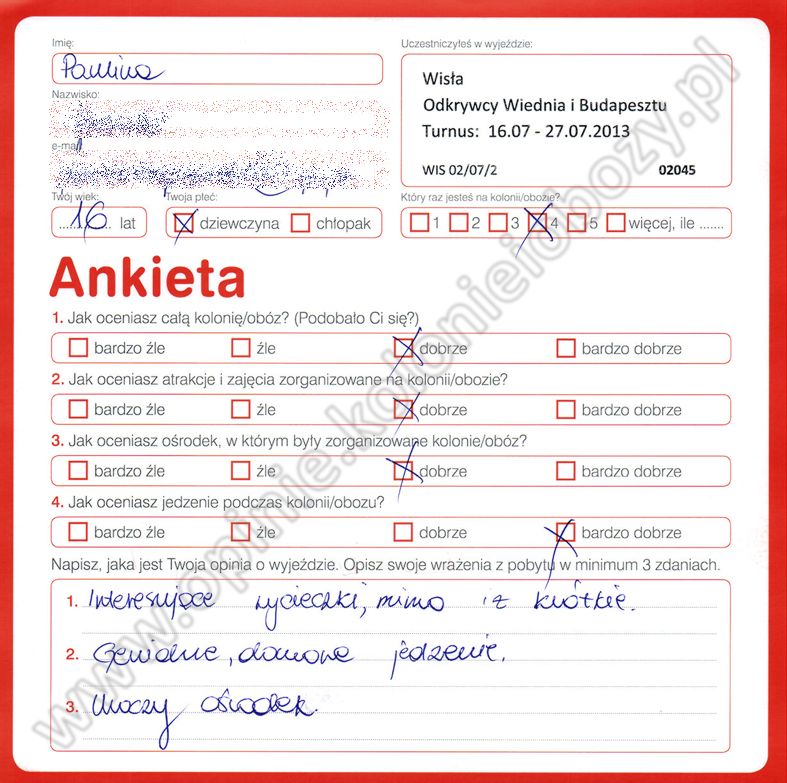 Imię:
Paulina
Nazwisko:
e-mail
Twój wiek:
16 lat
Twoja płeć:
dziewczyna chłopak
Uczestniczyłeś w wyjeździe:
Wisła
Odkrywcy Wiednia i Budapesztu
Turnus: 16.07 - 27.07.2013
WIS 02/07/2 02045
Który raz jesteś na kolonii/obozie?
1 2 3 4 5 więcej, ile .......
Ankieta
1. Jak oceniasz całą kolonię/obóz? (Podobało Ci się?)
bardzo źle źle dobrze bardzo dobrze
2. Jak oceniasz atrakcje i zajęcia zorganizowane na kolonii/obozie?
bardzo źle źle dobrze bardzo dobrze
3. Jak oceniasz ośrodek, w którym były zorganizowane kolonie/obóz?
bardzo źle źle dobrze bardzo dobrze
4. Jak oceniasz jedzenie podczas kolonii/obozu?
bardzo źle źle dobrze bardzo dobrze
Napisz, jaka jest Twoja opinia o wyjeździe. Opisz swoje wrażenia z pobytu w minimum 3 zdaniach.
1. Interesujące wycieczki, mimo iż krótkie.
2. Genialne, domowe jedzenie.
3. Uroczy ośrodek.
www.opinie.kolonieiobozy.pl